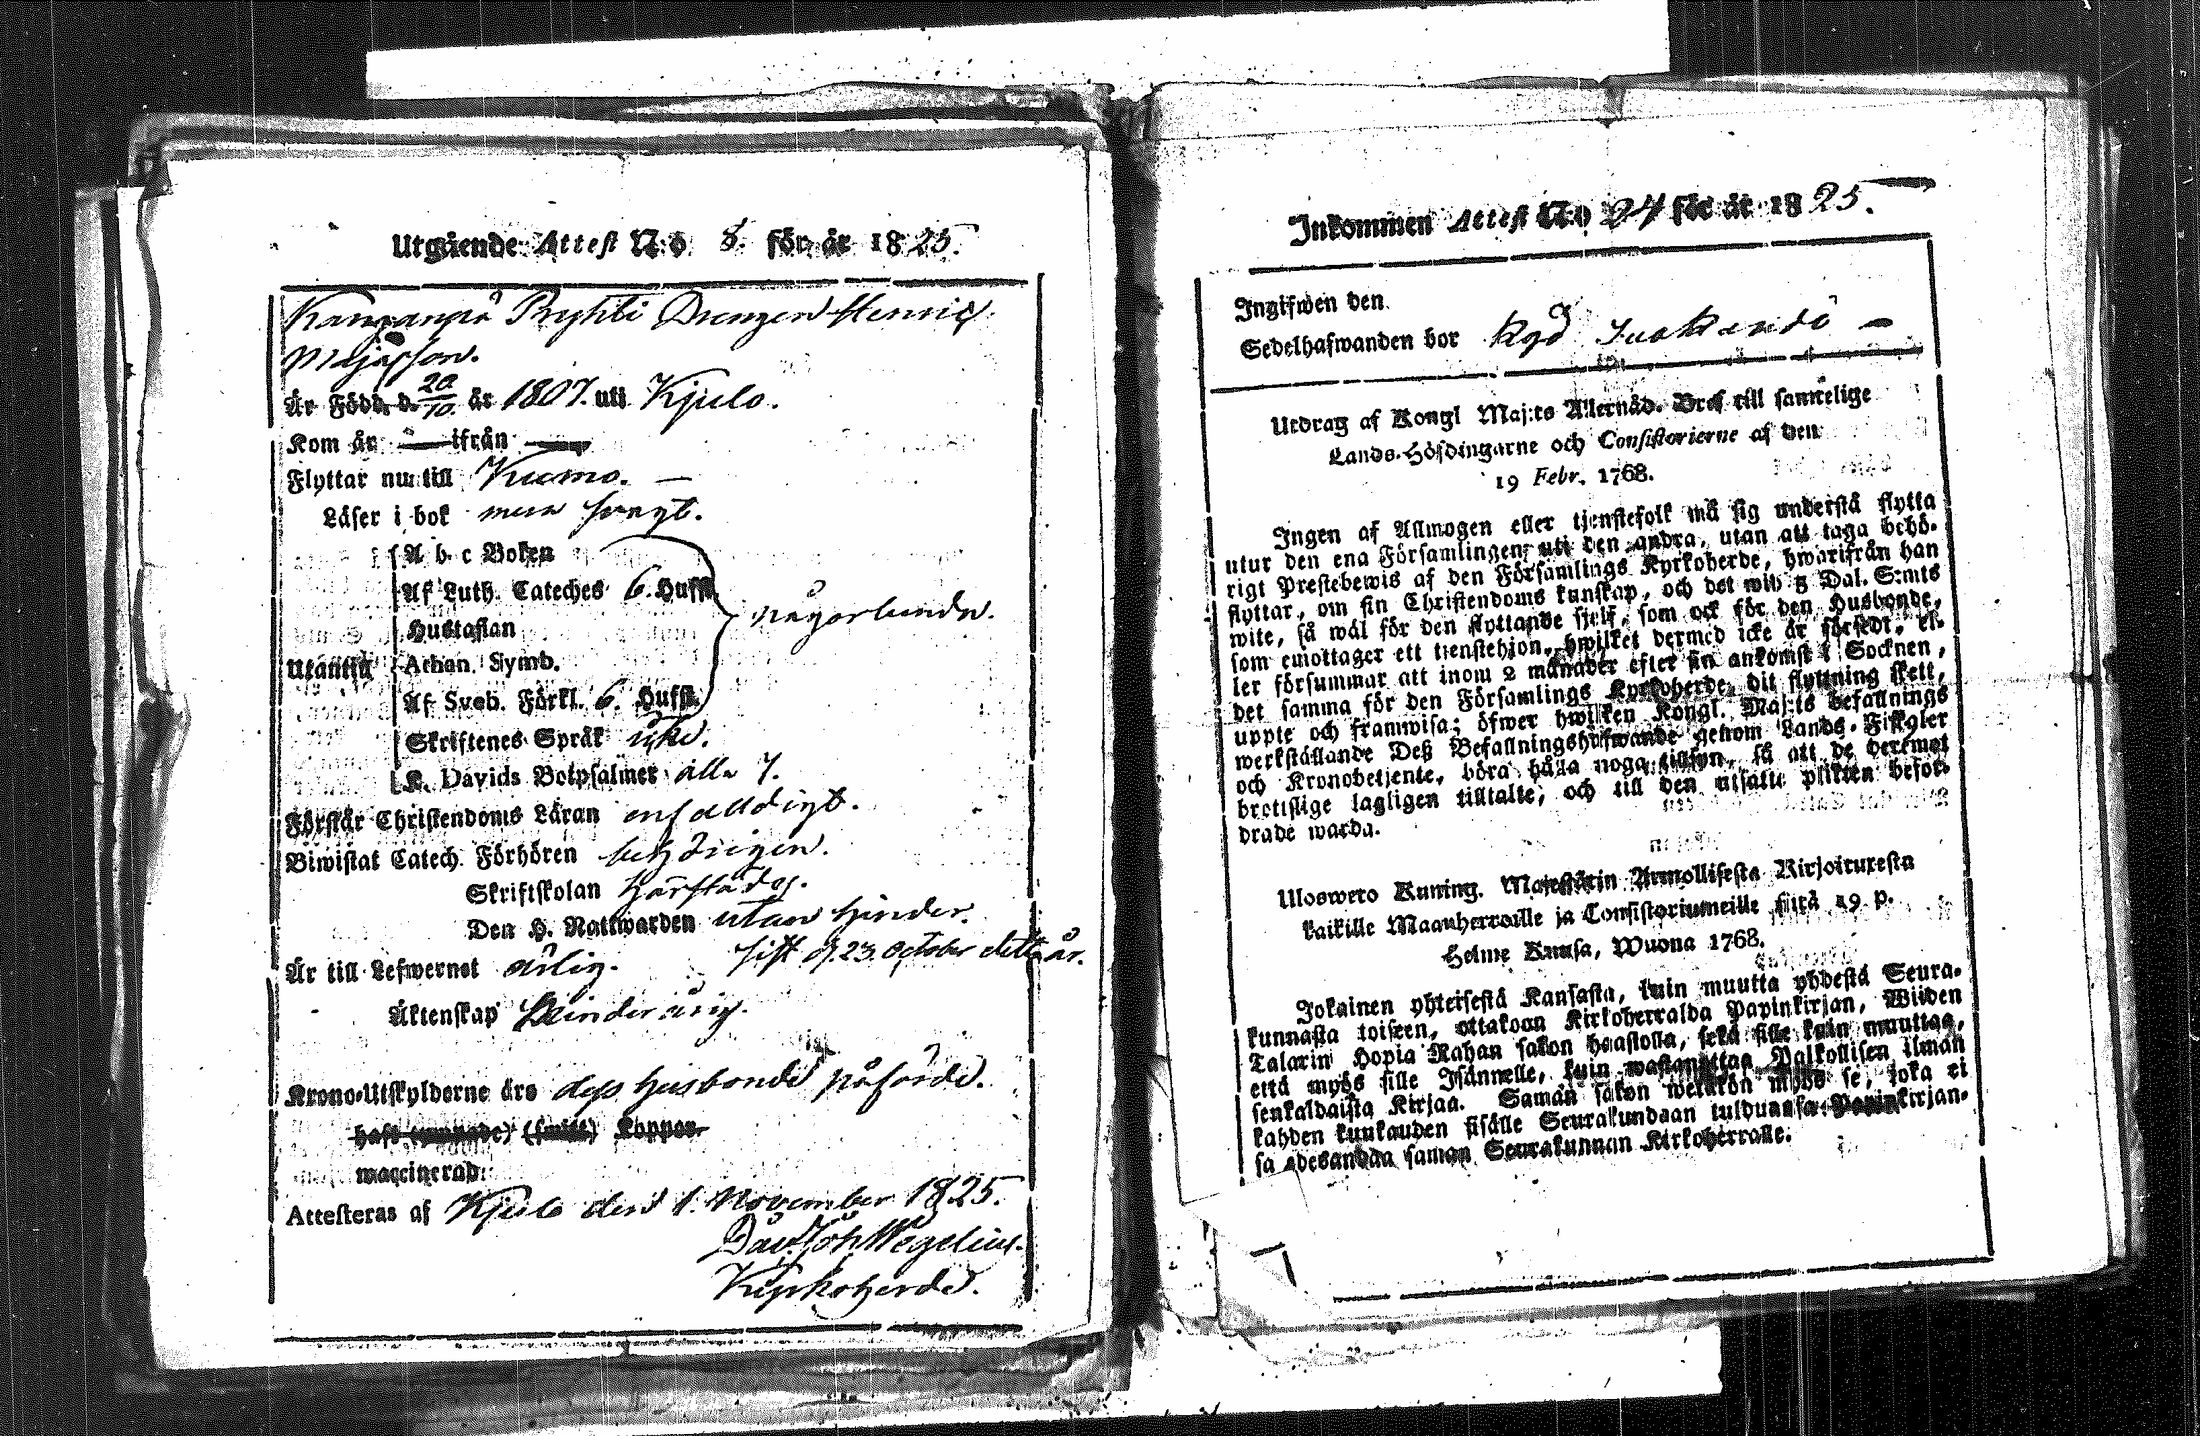 Utgående Attest N:o 8. för år 1825.
Kanzanpä Pryhti Drengen Henric
Majasson.
Är Född d. 20/10. år 1807. uti Kjulo.
Kom år — ifrån —
Flyttar nu till Kumo. —
Läser i bok men svagt.
A b c Boken
Af Luth. Cateches 6. Hufst.
någorlunda.
Hustaflan
Utantill
Athan. Symb.
Af Sveb. Förkl. 6. Hufst.
Skriftenes Språk icke.
K. Davids Botpsalmer alla 7.
Förstår Christendoms Läran enfalldigt.
Biwistat Catech. Förhören behörigen.
Skriftskolan härstädes.
Den H. Nattwarden utan hinder.
sist d. 23. October detta år.
Är till Lefwernet ärlig.
Äktenskap hinderfri.
Krono-Utskylderne äro dess husbonde påförde.
haft (smitt) Koppor.
waccinerad.
Attesteras af Kjulo den 1. November 1825.
Dav. Joh Wegelius.
Kyrkoherde.
Inkommen Attest N:o 24 för år 1825.
Ingifwen den
Sedelhafwanden bor
Utdrag af Kongl Maj:ts Allernåd. Bref till samtelige
Lands-Höfdingarne och Consistorierne af den
19 Febr. 1768.
Ingen af Allmogen eller tjenstefolk må sig understå flytta
utur den ena Församlingen uti den andra, utan att taga behö-
rigt Prestebewis af den Församlings Kyrkoherde, hwarifrån han
flyttar, om sin Christendoms kunskap, och det wid 5 Dal. S:mts
wite, så wäl för den flyttande sjelf, som ock för den Husbonde,
som emottager ett tjenstehjon, hwilket dermed icke är försedt, el-
ler försummar att inom 2 månader efter sin ankomst i Socknen,
det samma för den Församlings Kyrkoherde, dit flyttning skett,
uppte och framwisa; öfwer hwilken Kongl. Maj:ts befallnings
werkställande Deß Befallningshafwande genom Lands-Fiskaler
och Kronobetjente, böra hålla noga tillsyn, så att de deremot
brottslige lagligen tilltalte, och till den utsatte plikten befor-
drade warda.
Uloswero Kuning. Majestätin Armollisesta Kirjoituxesta
kaikille Maanherroille ja Consistoriumeille siitä 19 p.
Helme Kuusa, Wuona 1768.
Jokainen yhteisestä Kansasta, kuin muutta yhdestä Seura-
kunnasta toiseen, ottakoon Kirkoherralda Papinkirjan, Wiiden
Talarin Hopia Rahan sakon haastolla, sekä sille kuin muuttaa,
että myös sille Isännelle, kuin wastanottaa Palkollisen ilman
senkaldaista Kirjaa. Samän sakon wetäkön myös se, joka ei
kahden kuukauden sisälle Seurakundaan tulduansa Papinkirjan-
sa edesandaa saman Seurakunnan Kirkoherralle.